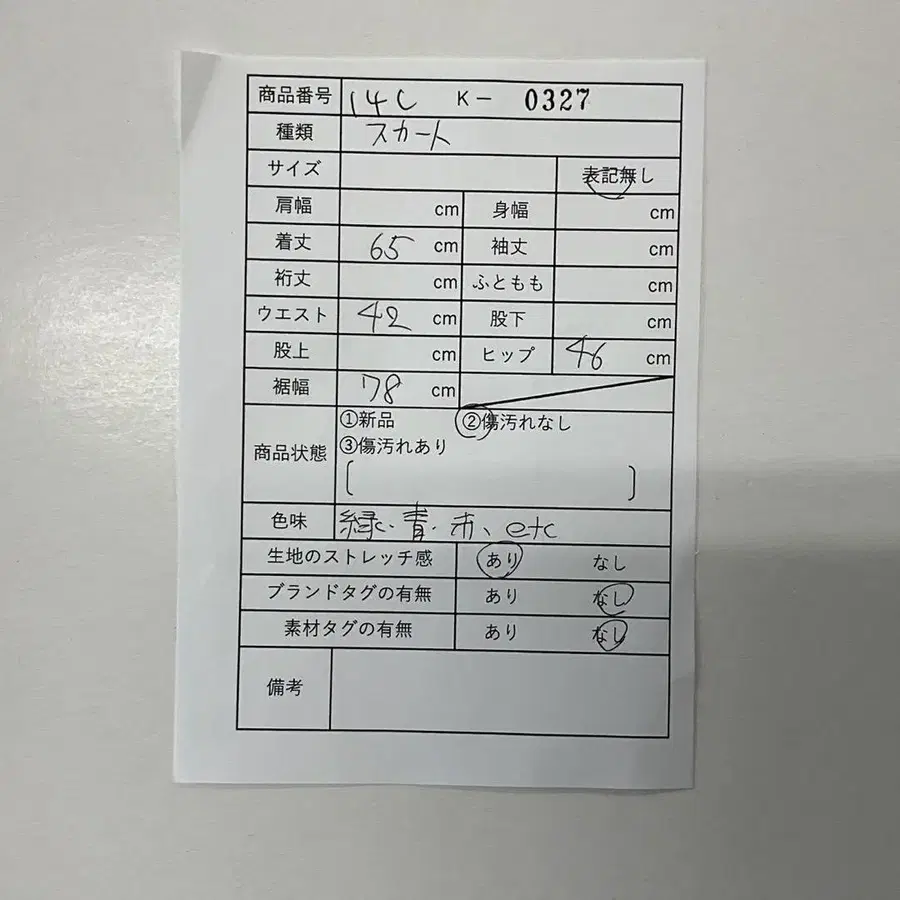 商品番号 14C K- 0327
種類 スカート
サイズ 表記無し
肩幅 cm 身幅 cm
着丈 65 cm 袖丈 cm
裄丈 cm ふともも cm
ウエスト 42 cm 股下 cm
股上 cm ヒップ 46 cm
裾幅 78 cm
①新品 ②傷汚れなし
商品状態 ③傷汚れあり
色味 緑・青・赤、etc
生地のストレッチ感 あり なし
ブランドタグの有無 あり なし
素材タグの有無 あり なし
備考